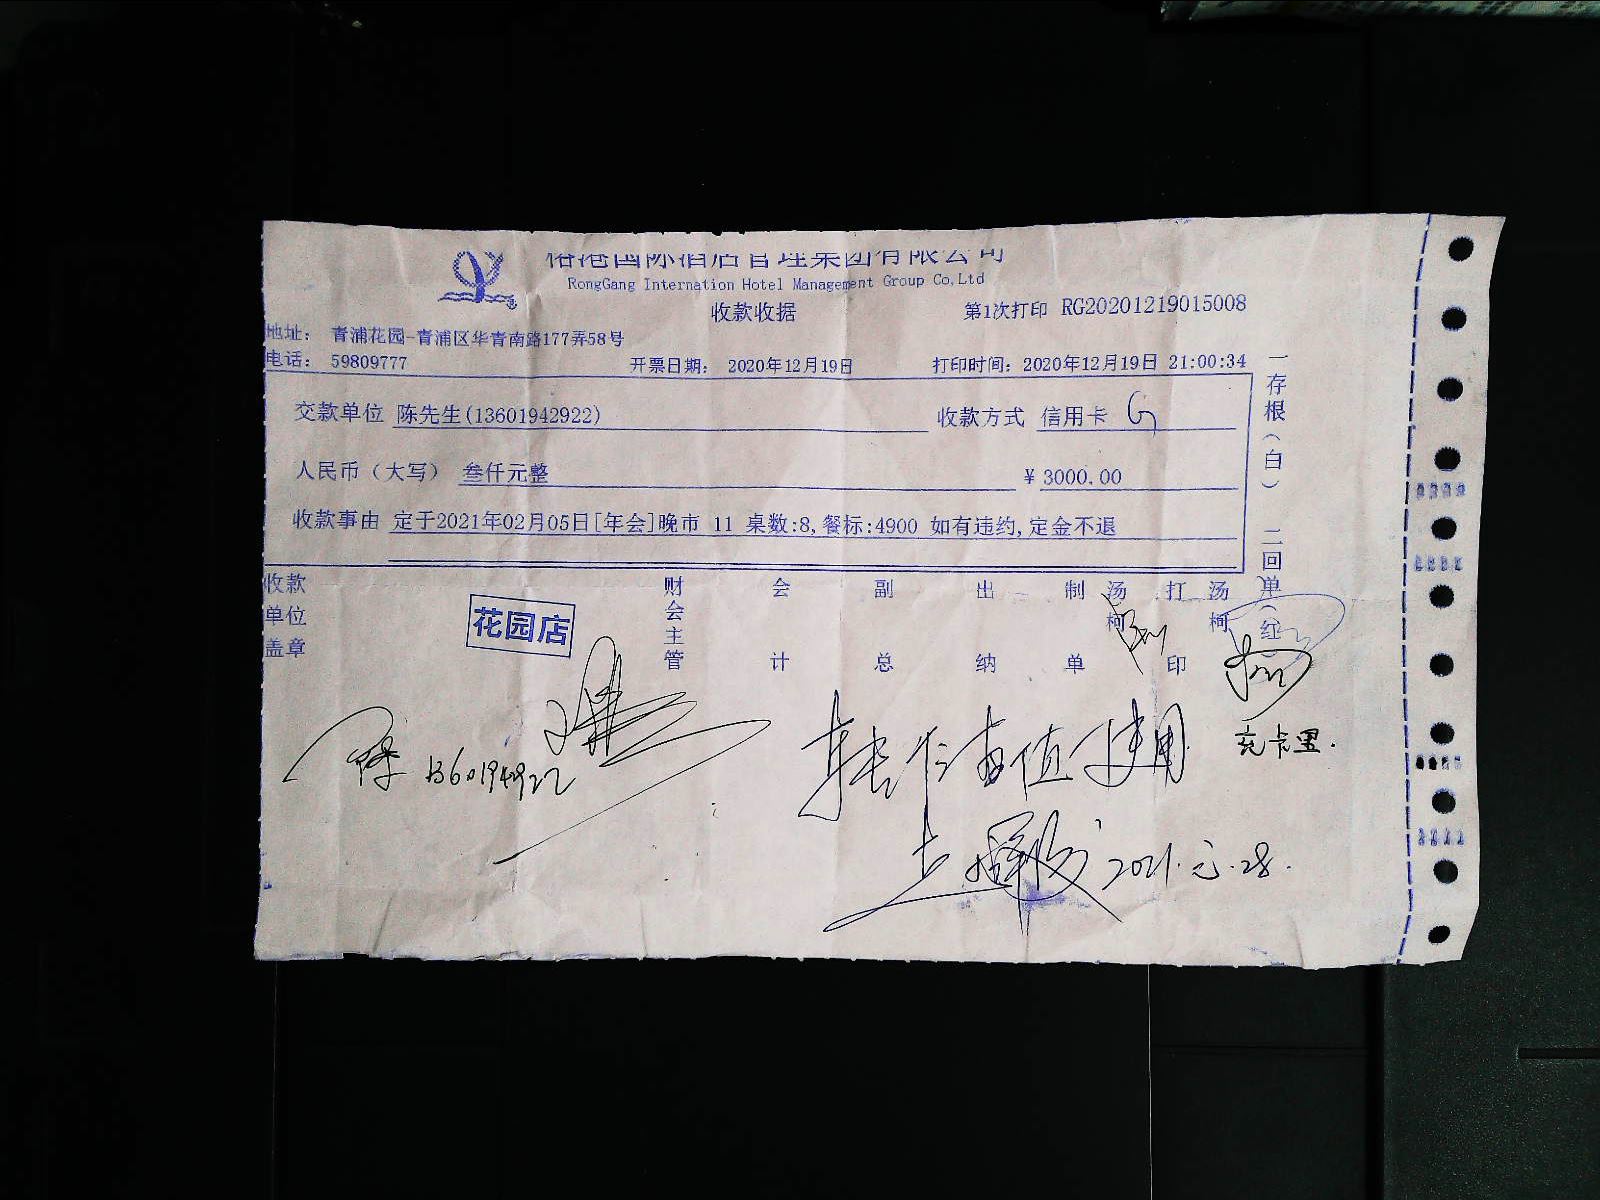 裕港国际酒店管理集团有限公司
RongGang Internation Hotel Management Group Co,Ltd
收款收据
第1次打印 RG20201219015008
地址： 青浦花园-青浦区华青南路177弄58号
电话： 59809777
开票日期： 2020年12月19日
打印时间： 2020年12月19日 21:00:34
交款单位 陈先生(13601942922)
收款方式 信用卡 G
人民币（大写） 叁仟元整
¥ 3000.00
收款事由 定于2021年02月05日[年会]晚市 11 桌数:8,餐标:4900 如有违约,定金不退
一存根（白） 二回单（红
收款单位盖章
花园店
财会主管
会计
副总
出纳
制单
汤柯
打印
汤柯
陈 13601942922
转作储值使用
充卡里.
2021.元.28.